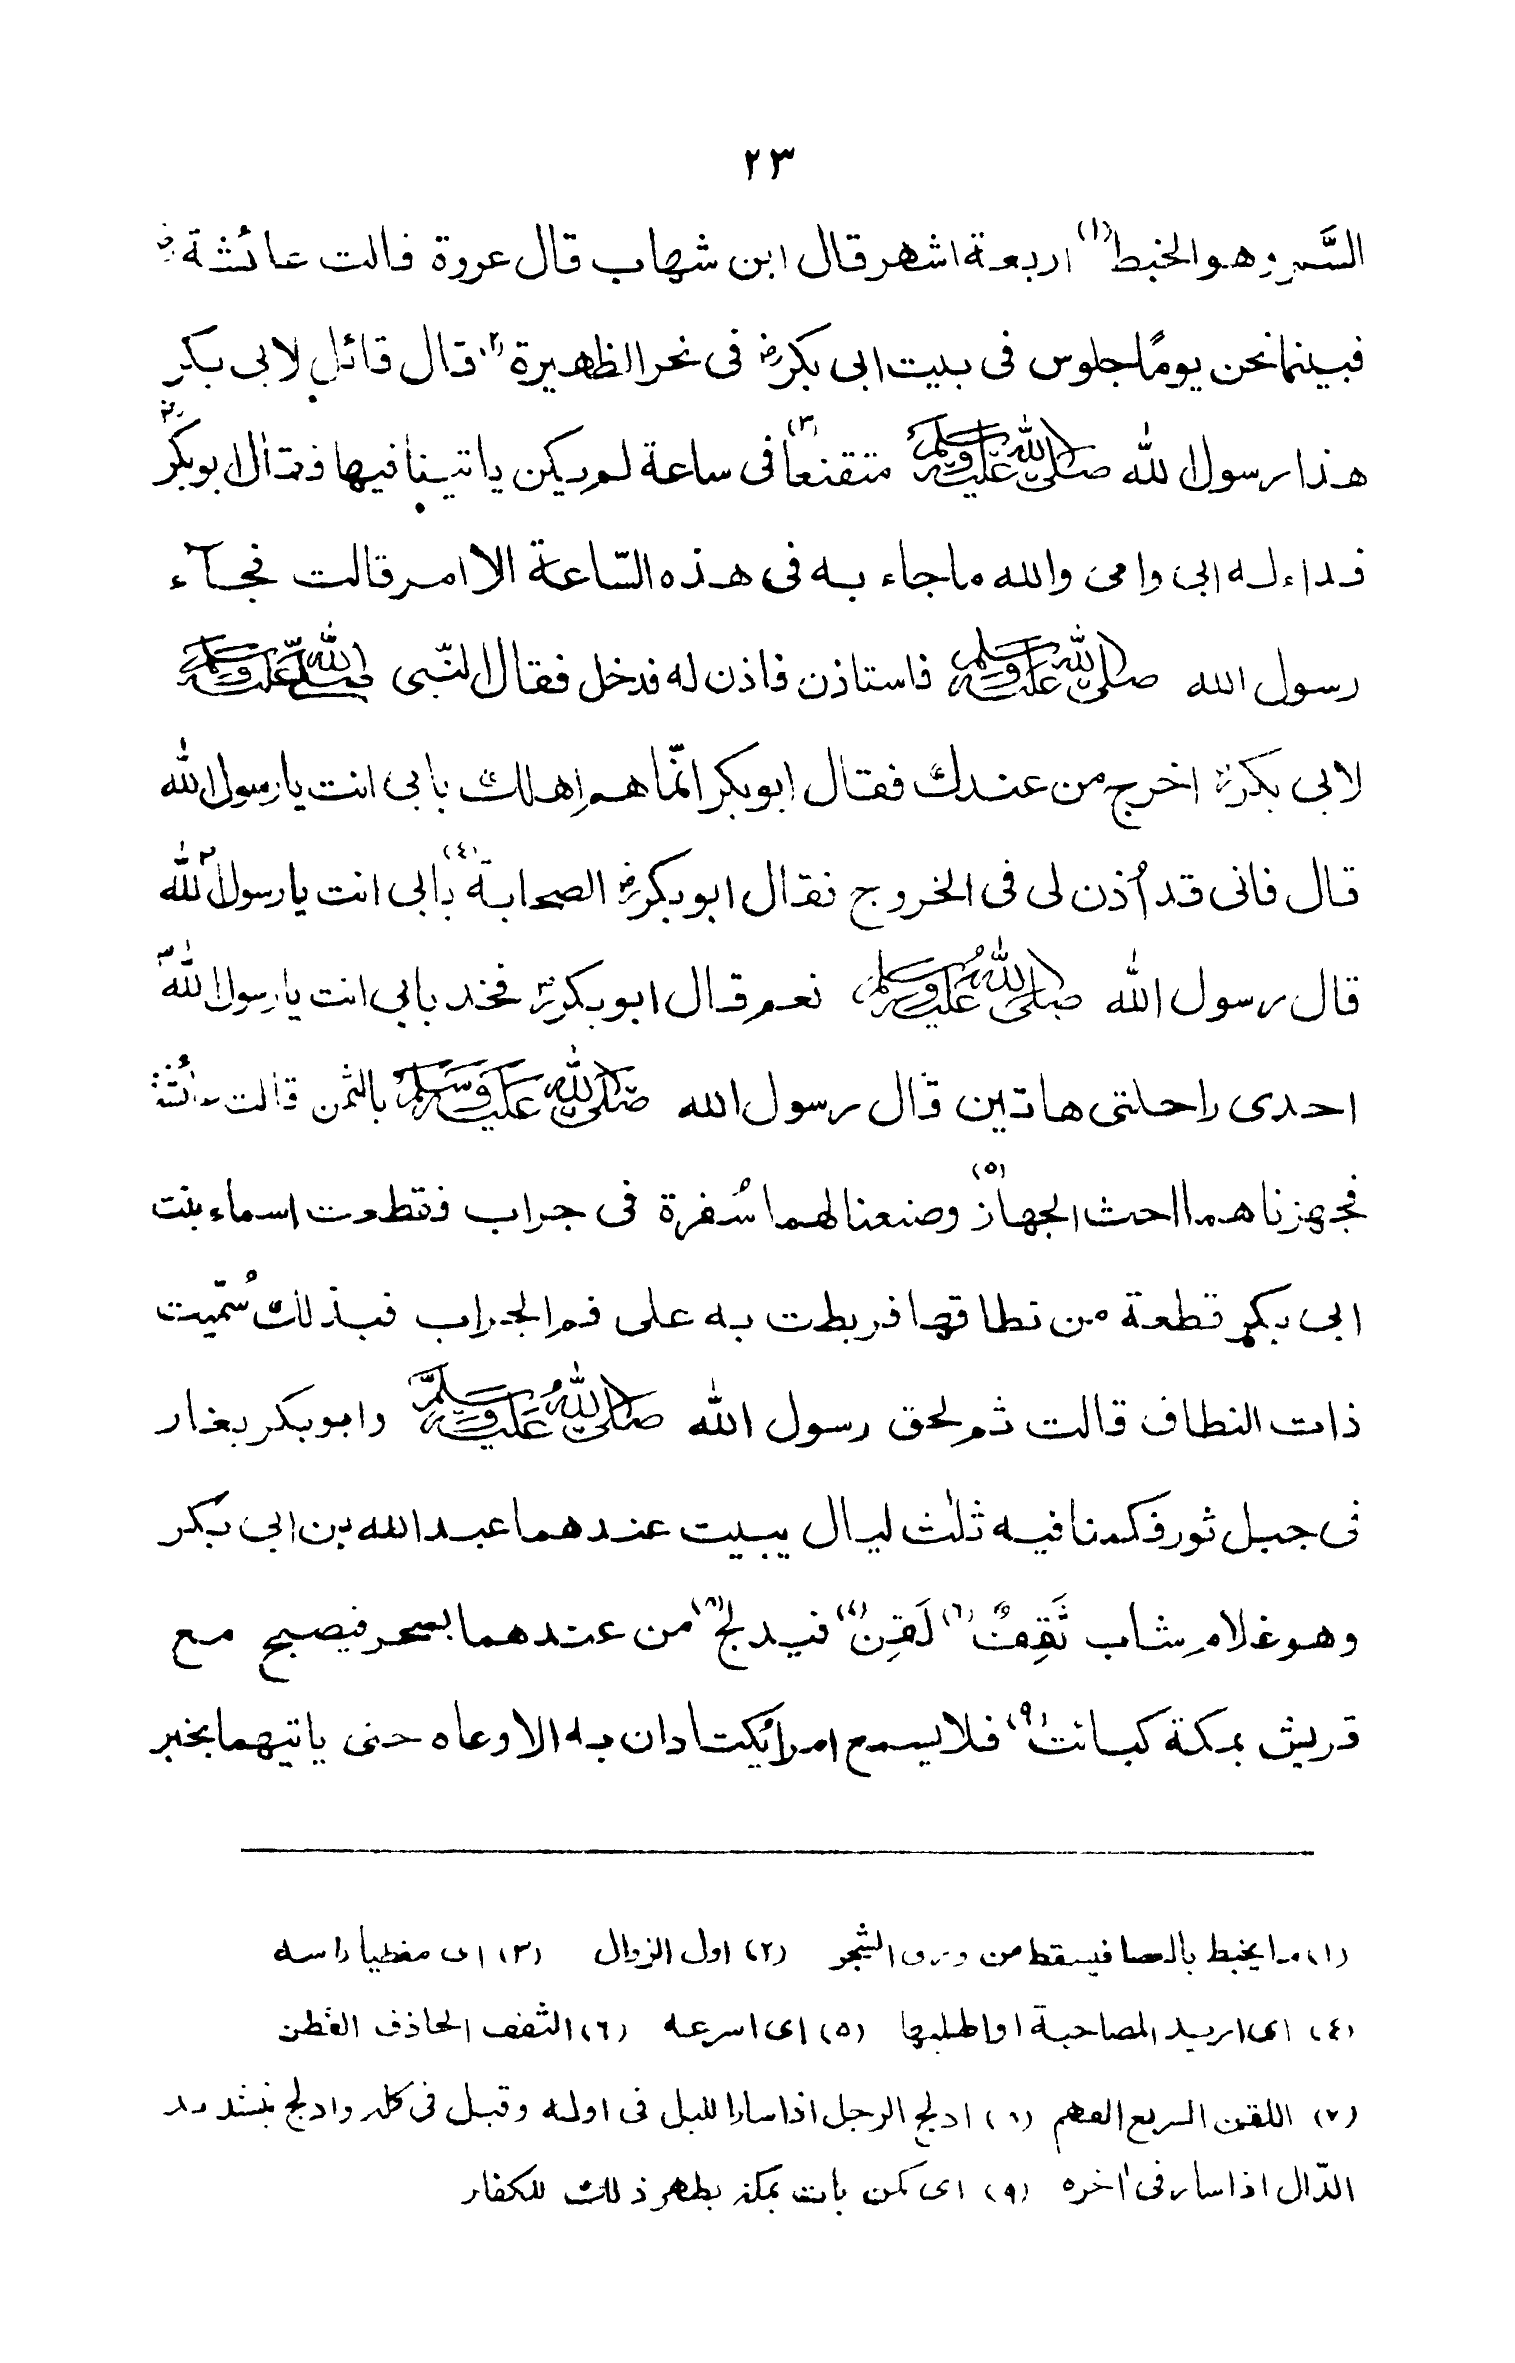 ٢٣
السَّمر وهو الخبط(١) اربعة اشهر قال ابن شهاب قال عروة قالت عائشة رض
فبينما نحن يومًا جلوس فى بيت ابى بكر رض فى نحر الظهيرة(٢) قال قائل لابى بكر رض
هذا رسول الله صلى الله عليه وسلم متقنعا(٣) فى ساعة لم يكن ياتينا فيها فقال ابوبكر
فداء له ابى وامى والله ماجاء به فى هذه السّاعة الا امر قالت فجآء
رسول الله صلى الله عليه وسلم فاستاذن فاذن له فدخل فقال النّبى صلى الله عليه وسلم
لابى بكر رض اخرج من عندك فقال ابوبكر انّما هم اهلك بابى انت يا رسول الله
قال فانى قد اُذن لى فى الخروج فقال ابوبكر رض الصحابة(٤) بابى انت يا رسول الله
قال رسول الله صلى الله عليه وسلم نعم قال ابوبكر رض فخذ بابى انت يا رسول الله
احدى راحلتى هاتين قال رسول الله صلى الله عليه وسلم بالثمن قالت عائشة
فجهزناهما احث الجهاز(٥) وصنعنا لهما سُفرة فى جراب فقطعت اسماء بنت
ابى بكر قطعة من نطاقها فربطت به على فم الجراب فبذلك سُمّيت
ذات النطاق قالت ثم لحق رسول الله صلى الله عليه وسلم وابوبكر بغار
فى جبل ثور فكمنا فيه ثلٰث ليال يبيت عندهما عبد الله بن ابى بكر
وهو غلام شاب ثَقِفٌ(٦) لَقِن(٧) فيدلج(٨) من عندهما بسحر فيصبح مع
قريش بمكة كبائت(٩) فلا يسمع امرا يُكتادان به الا وعاه حتى ياتيهما بخبر
(١) ما يخبط بالعصا فيسقط من ورق الشجر (٢) اول الزوال (٣) اى مغطيا راسه
(٤) اى اريد المصاحبة او اطلبها (٥) اى اسرعه (٦) الثقف الحاذق الفطن
(٧) اللقن السريع الفهم (٨) ادلج الرجل اذا سار الليل فى اوله وقيل فى كله وادلج بتشديد
الدّال اذا سار فى اٰخره (٩) اى كمن بات بمكة يظهر ذلك للكفار